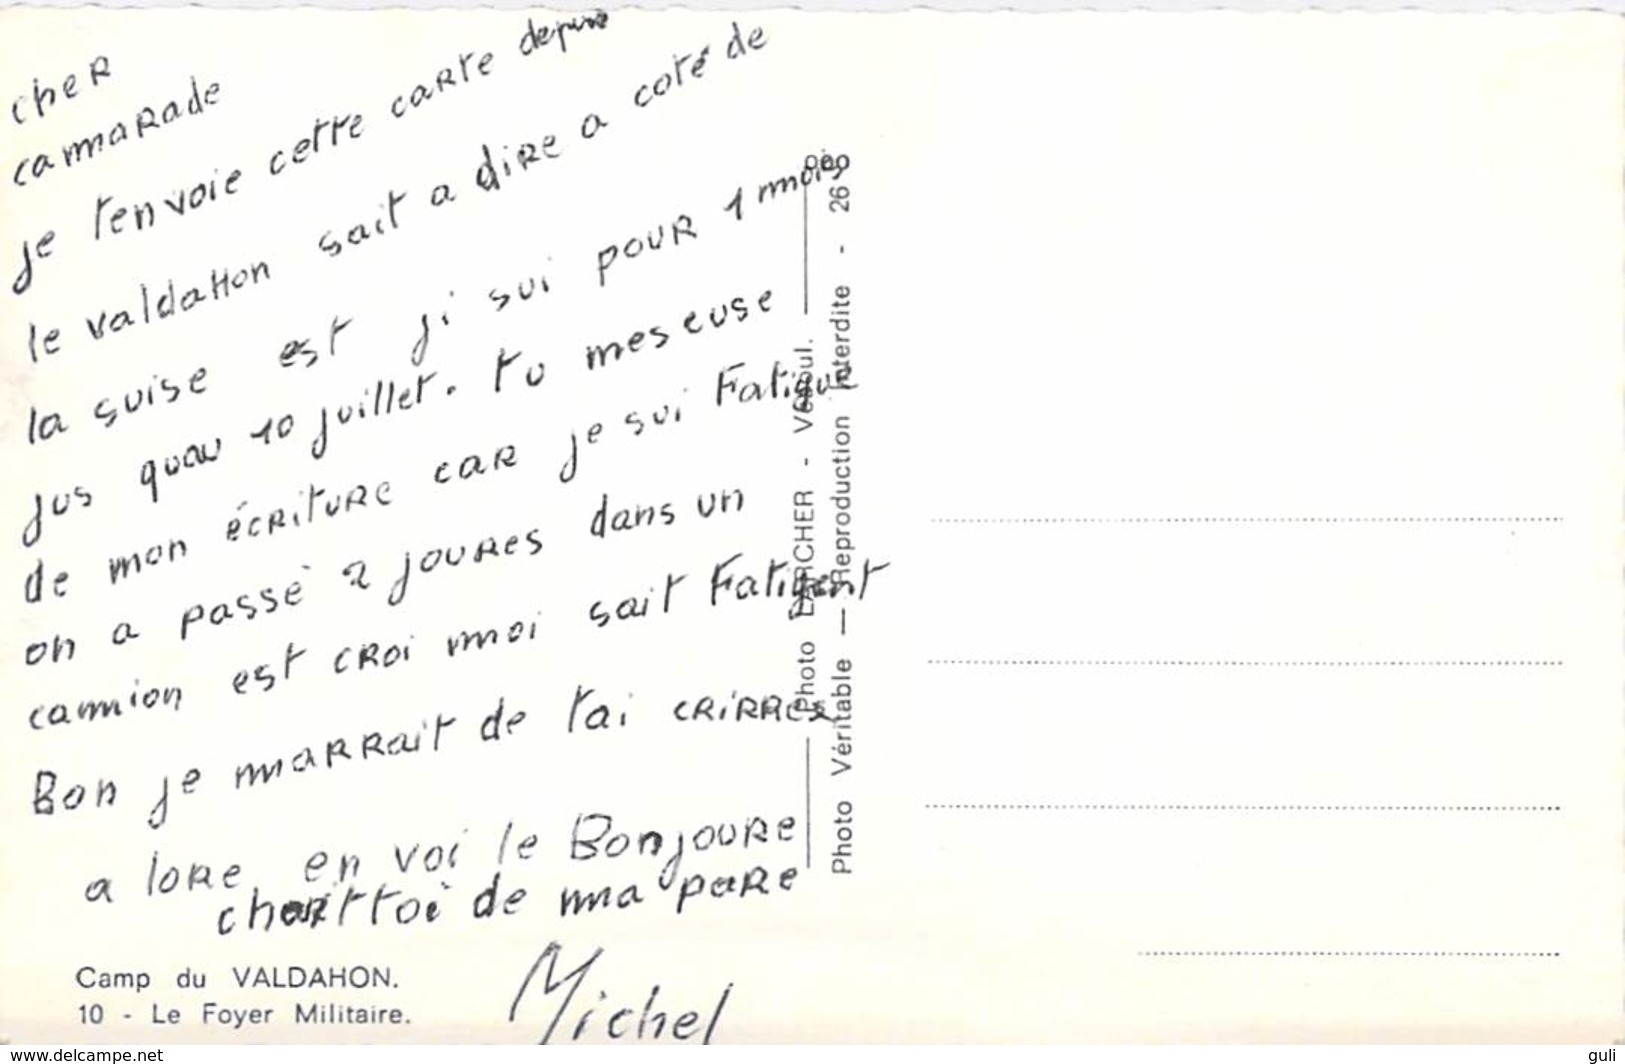 cher
camarade
je t'envoie cette carte depuis
le valdaHon sait a dire a coté de
la suise est ji sui pour 1 mois
jus quau 10 juillet. tu mescuse
de mon écriture car je sui Fatigue
on a passè 2 joures dans un
camion est croi moi sait Fatigent
Bon je marrait de tai crirres
a lore en voi le Bonjoure
chez ttoi de ma pare
Michel
Camp du VALDAHON.
10 - Le Foyer Militaire.
Photo LARCHER - Vesoul.
Photo Véritable — Reproduction Interdite - 26
www.delcampe.net
guli